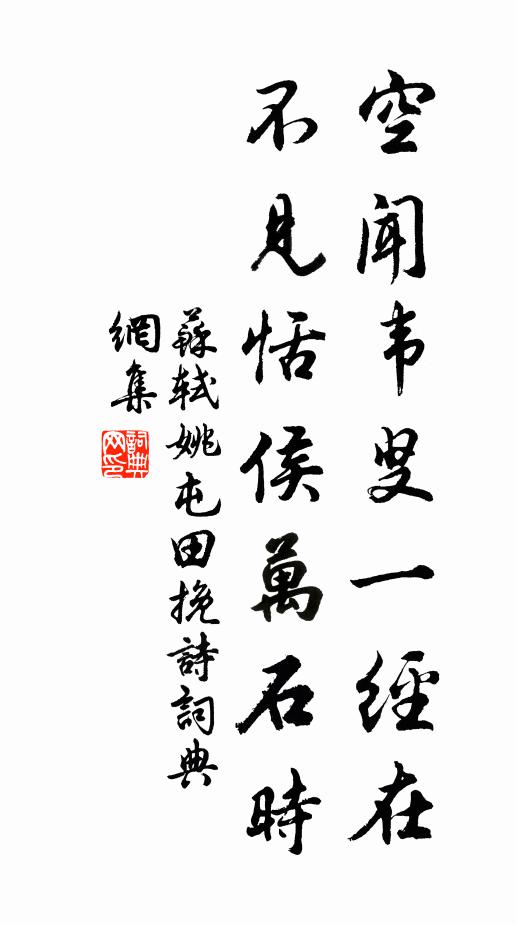 空闻韦叟一經在
不見恬侯萬石時
蘇軾姚屯田挽詩詞典
網集
詞典
网印